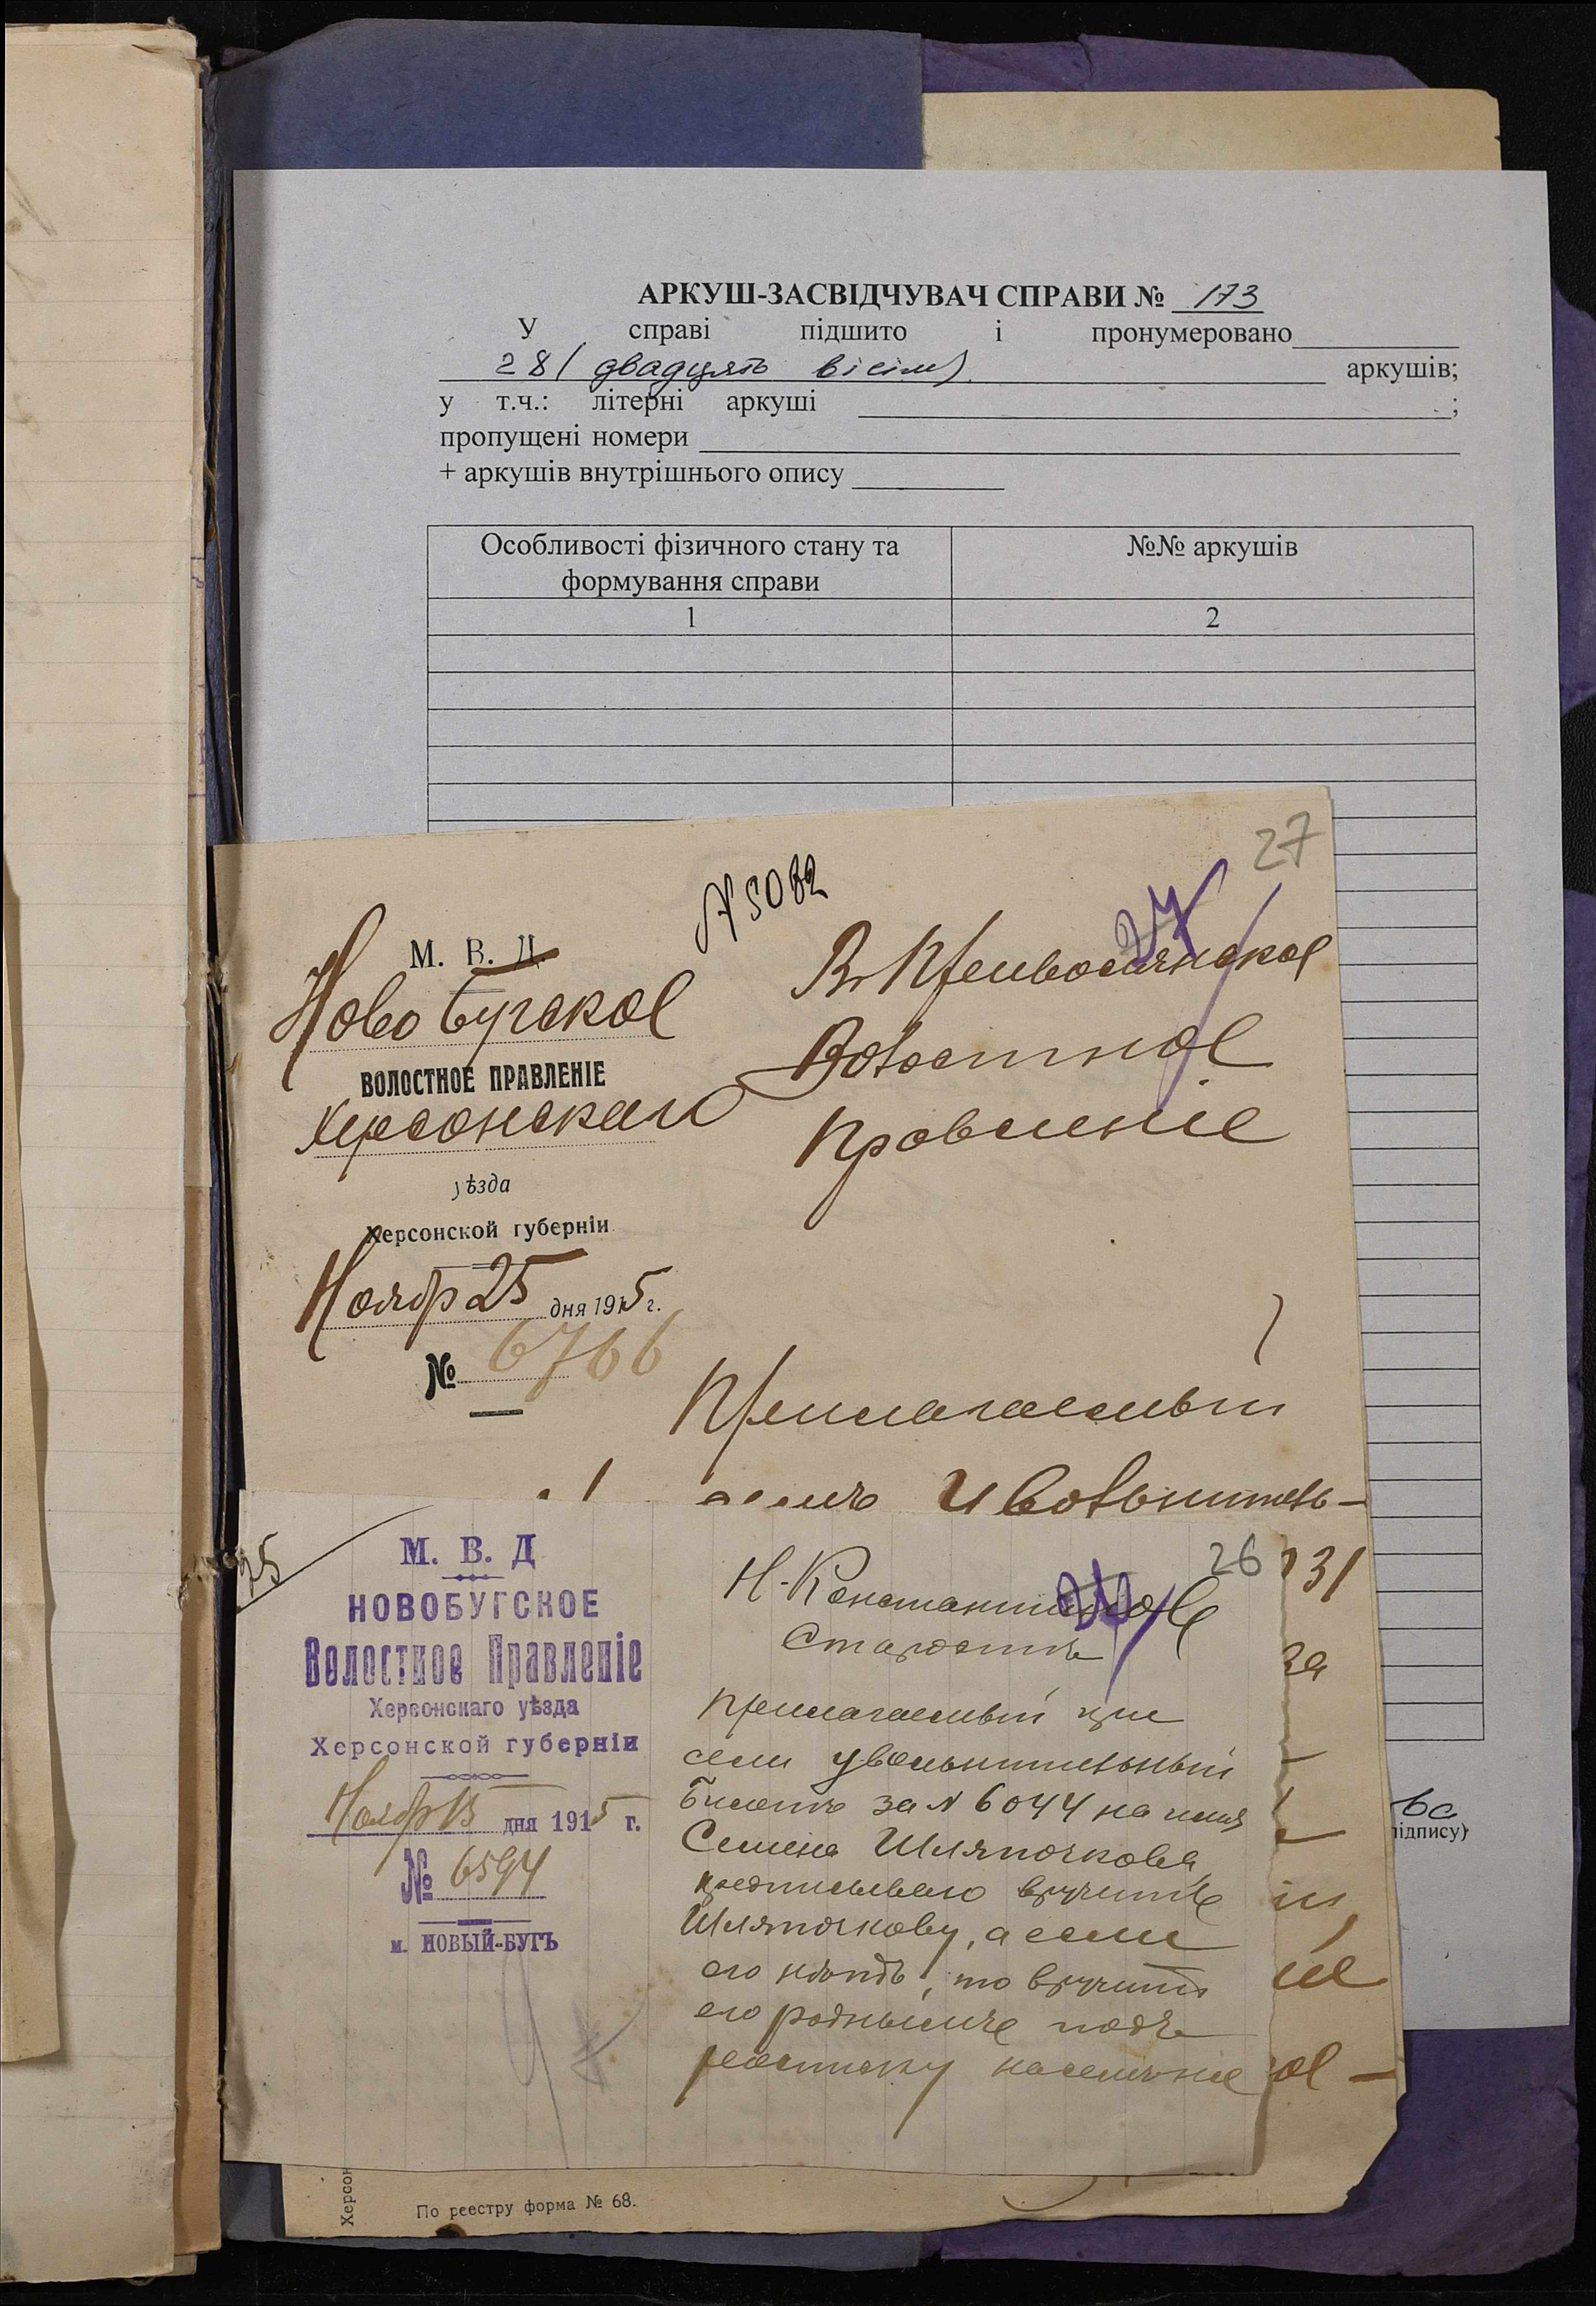 АРКУШ-ЗАСВІДЧУВАЧ СПРАВИ № 173
У справі підшито і пронумеровано
28 (двадцять вісім) аркушів;
у т.ч.: літерні аркуші ;
пропущені номери
+ аркушів внутрішнього опису
Особливості фізичного стану та формування справи
№№ аркушів
1
2
27
№ 5082
27
М. В. Д.
Ново Бугское
ВОЛОСТНОЕ ПРАВЛЕНІЕ
Херсонскаго
уѣзда
Херсонской губерніи
Ноябр 25 дня 1915 г.
№ 6766
Въ Привольнянское
Волостное
Правленіе
Прилагаемый
увольнитель-
25
М. В. Д
НОВОБУГСКОЕ
Волостное Правленіе
Херсонскаго уѣзда
Херсонской губерніи
Ноябр 15 дня 1915 г.
№ 6594
м. НОВЫЙ-БУГЪ
26
Н-Константин
Старостѣ
Прилагаемый при
семъ увольнительный
билетъ за № 6044 на имя
Семена Шляпочкова,
предписываю вручить
Шляпочкову, а если
его нѣтъ, то вручить
его роднымъ подъ
росписку на семъ же
231
за
ое -
підпису)
Херсон
По реестру форма № 68.